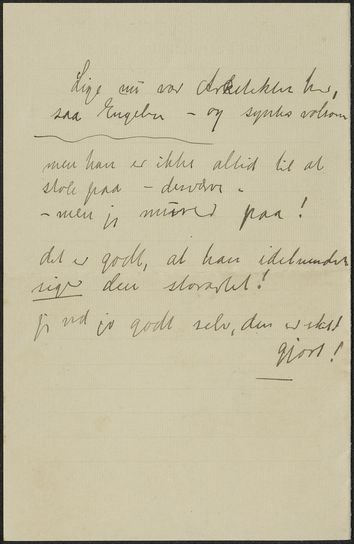 Lige nu var Arkitekten her,
saa Engelen - og syntes voldsom
men han er ikke altid til at
stole paa - desværre.
- men jeg paa!
det er godt, at han
siger den storartet!
jeg ved jo godt selv, den er
gjort!